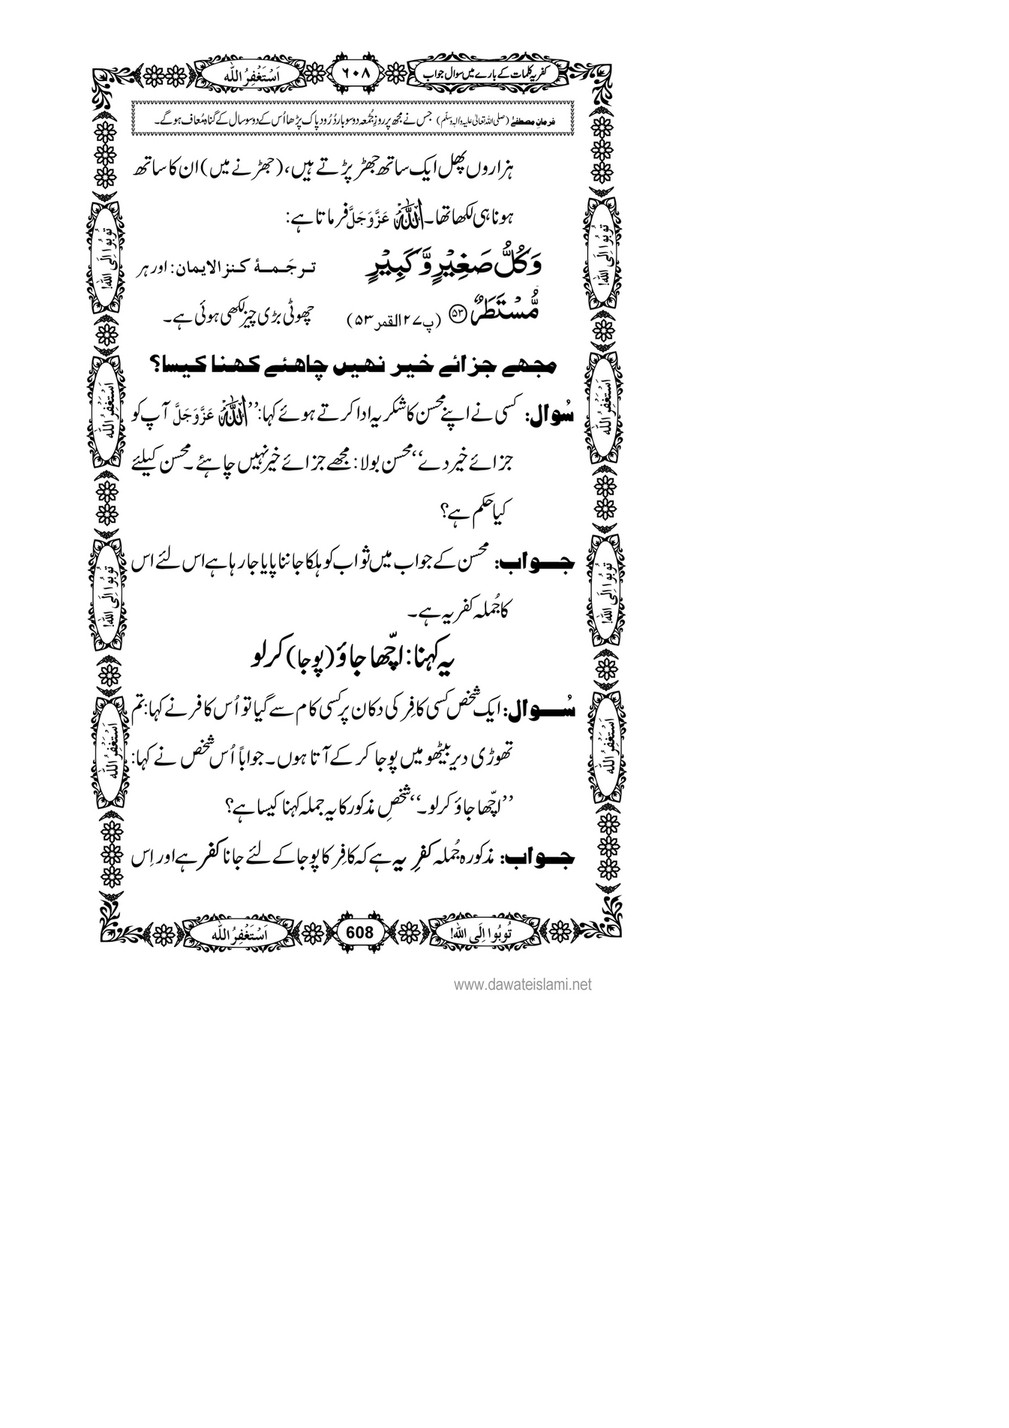 کفریہ کلمات کے بارے میں سوال جواب
٦٠٨
اَسْتَغْفِرُاللّٰه
فرمانِ مصطفیٰ (صلی اللہ تعالیٰ علیہ والہٖ وسلّم) جس نے مجھ پر روزِ جُمُعہ دو سو بار دُرُودِ پاک پڑھا اُس کے دو سو سال کے گناہ مُعاف ہوں گے۔
ہزاروں پھل ایک ساتھ جھڑ پڑتے ہیں، (جھڑنے میں) ان کا ساتھ
ہونا ہی لکھا تھا۔ اللہ عَزَّوَجَلَّ فرماتا ہے:
وَكُلُّ صَغِیْرٍ وَّ كَبِیْرٍ ترجَمۂ کنز الایمان: اور ہر
مُّسْتَطَرٌ ﴿۵۳﴾ (پ۲۷ القمر ۵۳) چھوٹی بڑی چیز لکھی ہوئی ہے۔
مجھے جزائے خیر نہیں چاہئے کہنا کیسا؟
سُوال: کسی نے اپنے محسن کا شکریہ ادا کرتے ہوئے کہا: ’’اللہ عَزَّوَجَلَّ آپ کو
جزائے خیر دے‘‘ محسن بولا: مجھے جزائے خیر نہیں چاہئے۔ محسن کیلئے
کیا حکم ہے؟
جواب: محسن کے جواب میں ثواب کو ہلکا جاننا پایا جا رہا ہے اس لئے اس
کا جُملہ کفریہ ہے۔
یہ کہنا: اچّھا جاؤ (پوجا) کرلو
سُوال: ایک شخص کسی کافِر کی دکان پر کسی کام سے گیا تو اُس کافر نے کہا: تم
تھوڑی دیر بیٹھو میں پوجا کر کے آتا ہوں۔ جواباً اُس شخص نے کہا:
’’اچّھا جاؤ کرلو۔‘‘ شخصِ مذکور کا یہ جملہ کہنا کیسا ہے؟
جواب: مذکورہ جُملہ کفرِیہ ہے کہ کافِر کا پوجا کے لئے جانا کفر ہے اور اِس
تُوبُوا اِلَی اللّٰه!
اَسْتَغْفِرُاللّٰه
تُوبُوا اِلَی اللّٰه!
اَسْتَغْفِرُاللّٰه
تُوبُوا اِلَی اللّٰه!
اَسْتَغْفِرُاللّٰه
تُوبُوا اِلَی اللّٰه!
اَسْتَغْفِرُاللّٰه
تُوبُوا اِلَی اللّٰه!
608
اَسْتَغْفِرُاللّٰه
www.dawateislami.net